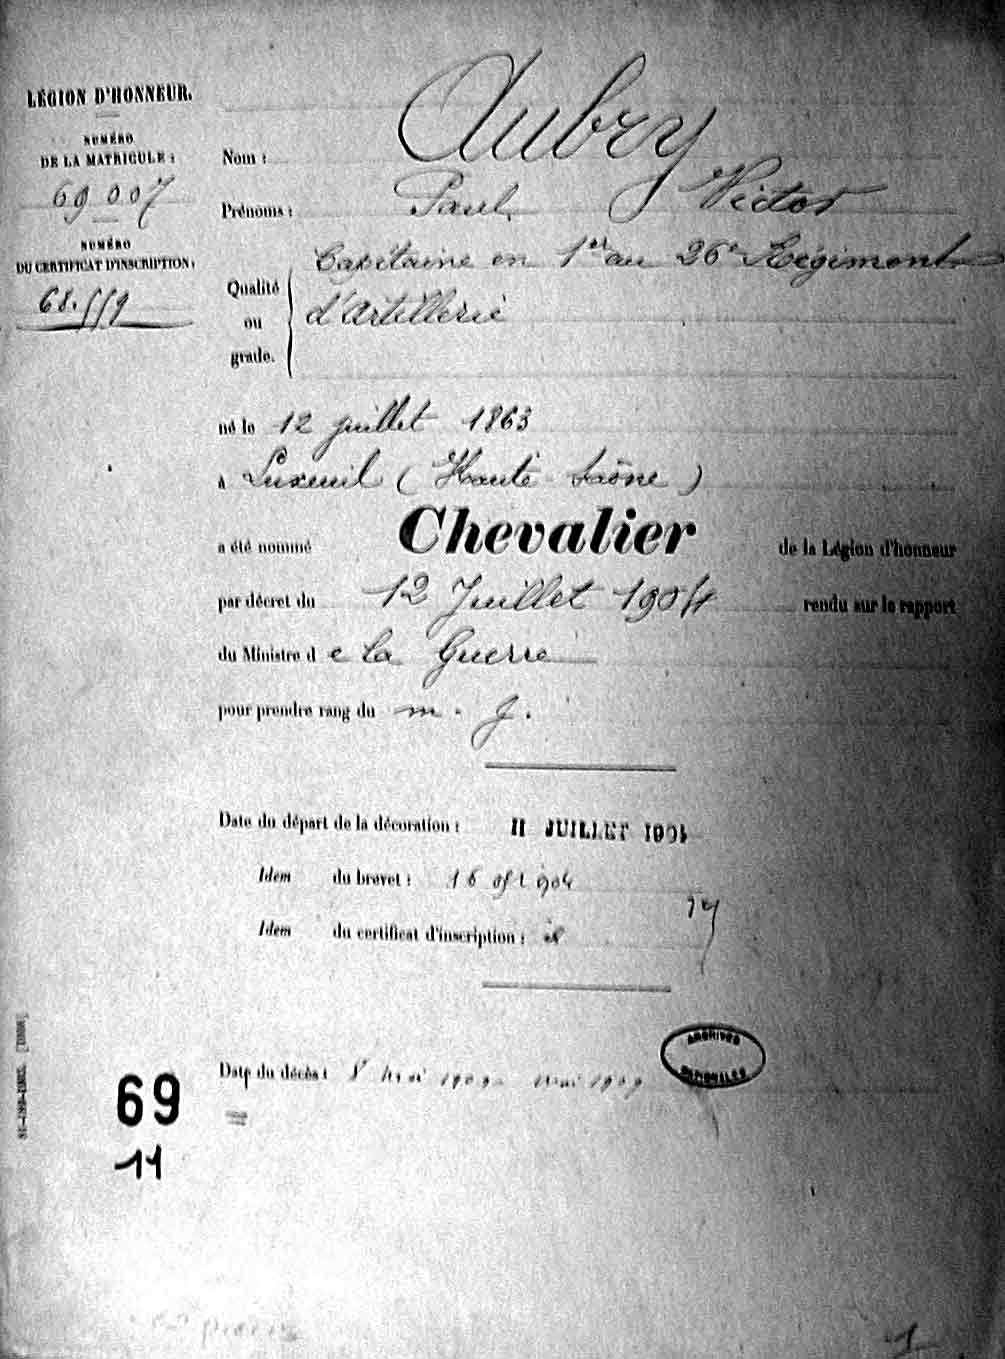 LÉGION D'HONNEUR.
NUMÉRO
DE LA MATRICULE :
69 007
NUMÉRO
DU CERTIFICAT D'INSCRIPTION :
68.559
Nom : Aubry
Prénoms : Paul Victor
Qualité ou grade. Capitaine en 1er au 26e Régiment
d'Artillerie
né le 12 juillet 1863
à Luxeuil (Haute Saône)
a été nommé Chevalier de la Légion d'honneur
par décret du 12 Juillet 1904 rendu sur le rapport
du Ministre de la Guerre
pour prendre rang du m. j.
Date du départ de la décoration : 11 JUILLET 1904
Idem du brevet : 16 1904
Idem du certificat d'inscription :
Date du décès : 8 mai 1909 mai 1909
ARCHIVES
NATIONALES
69
11
1